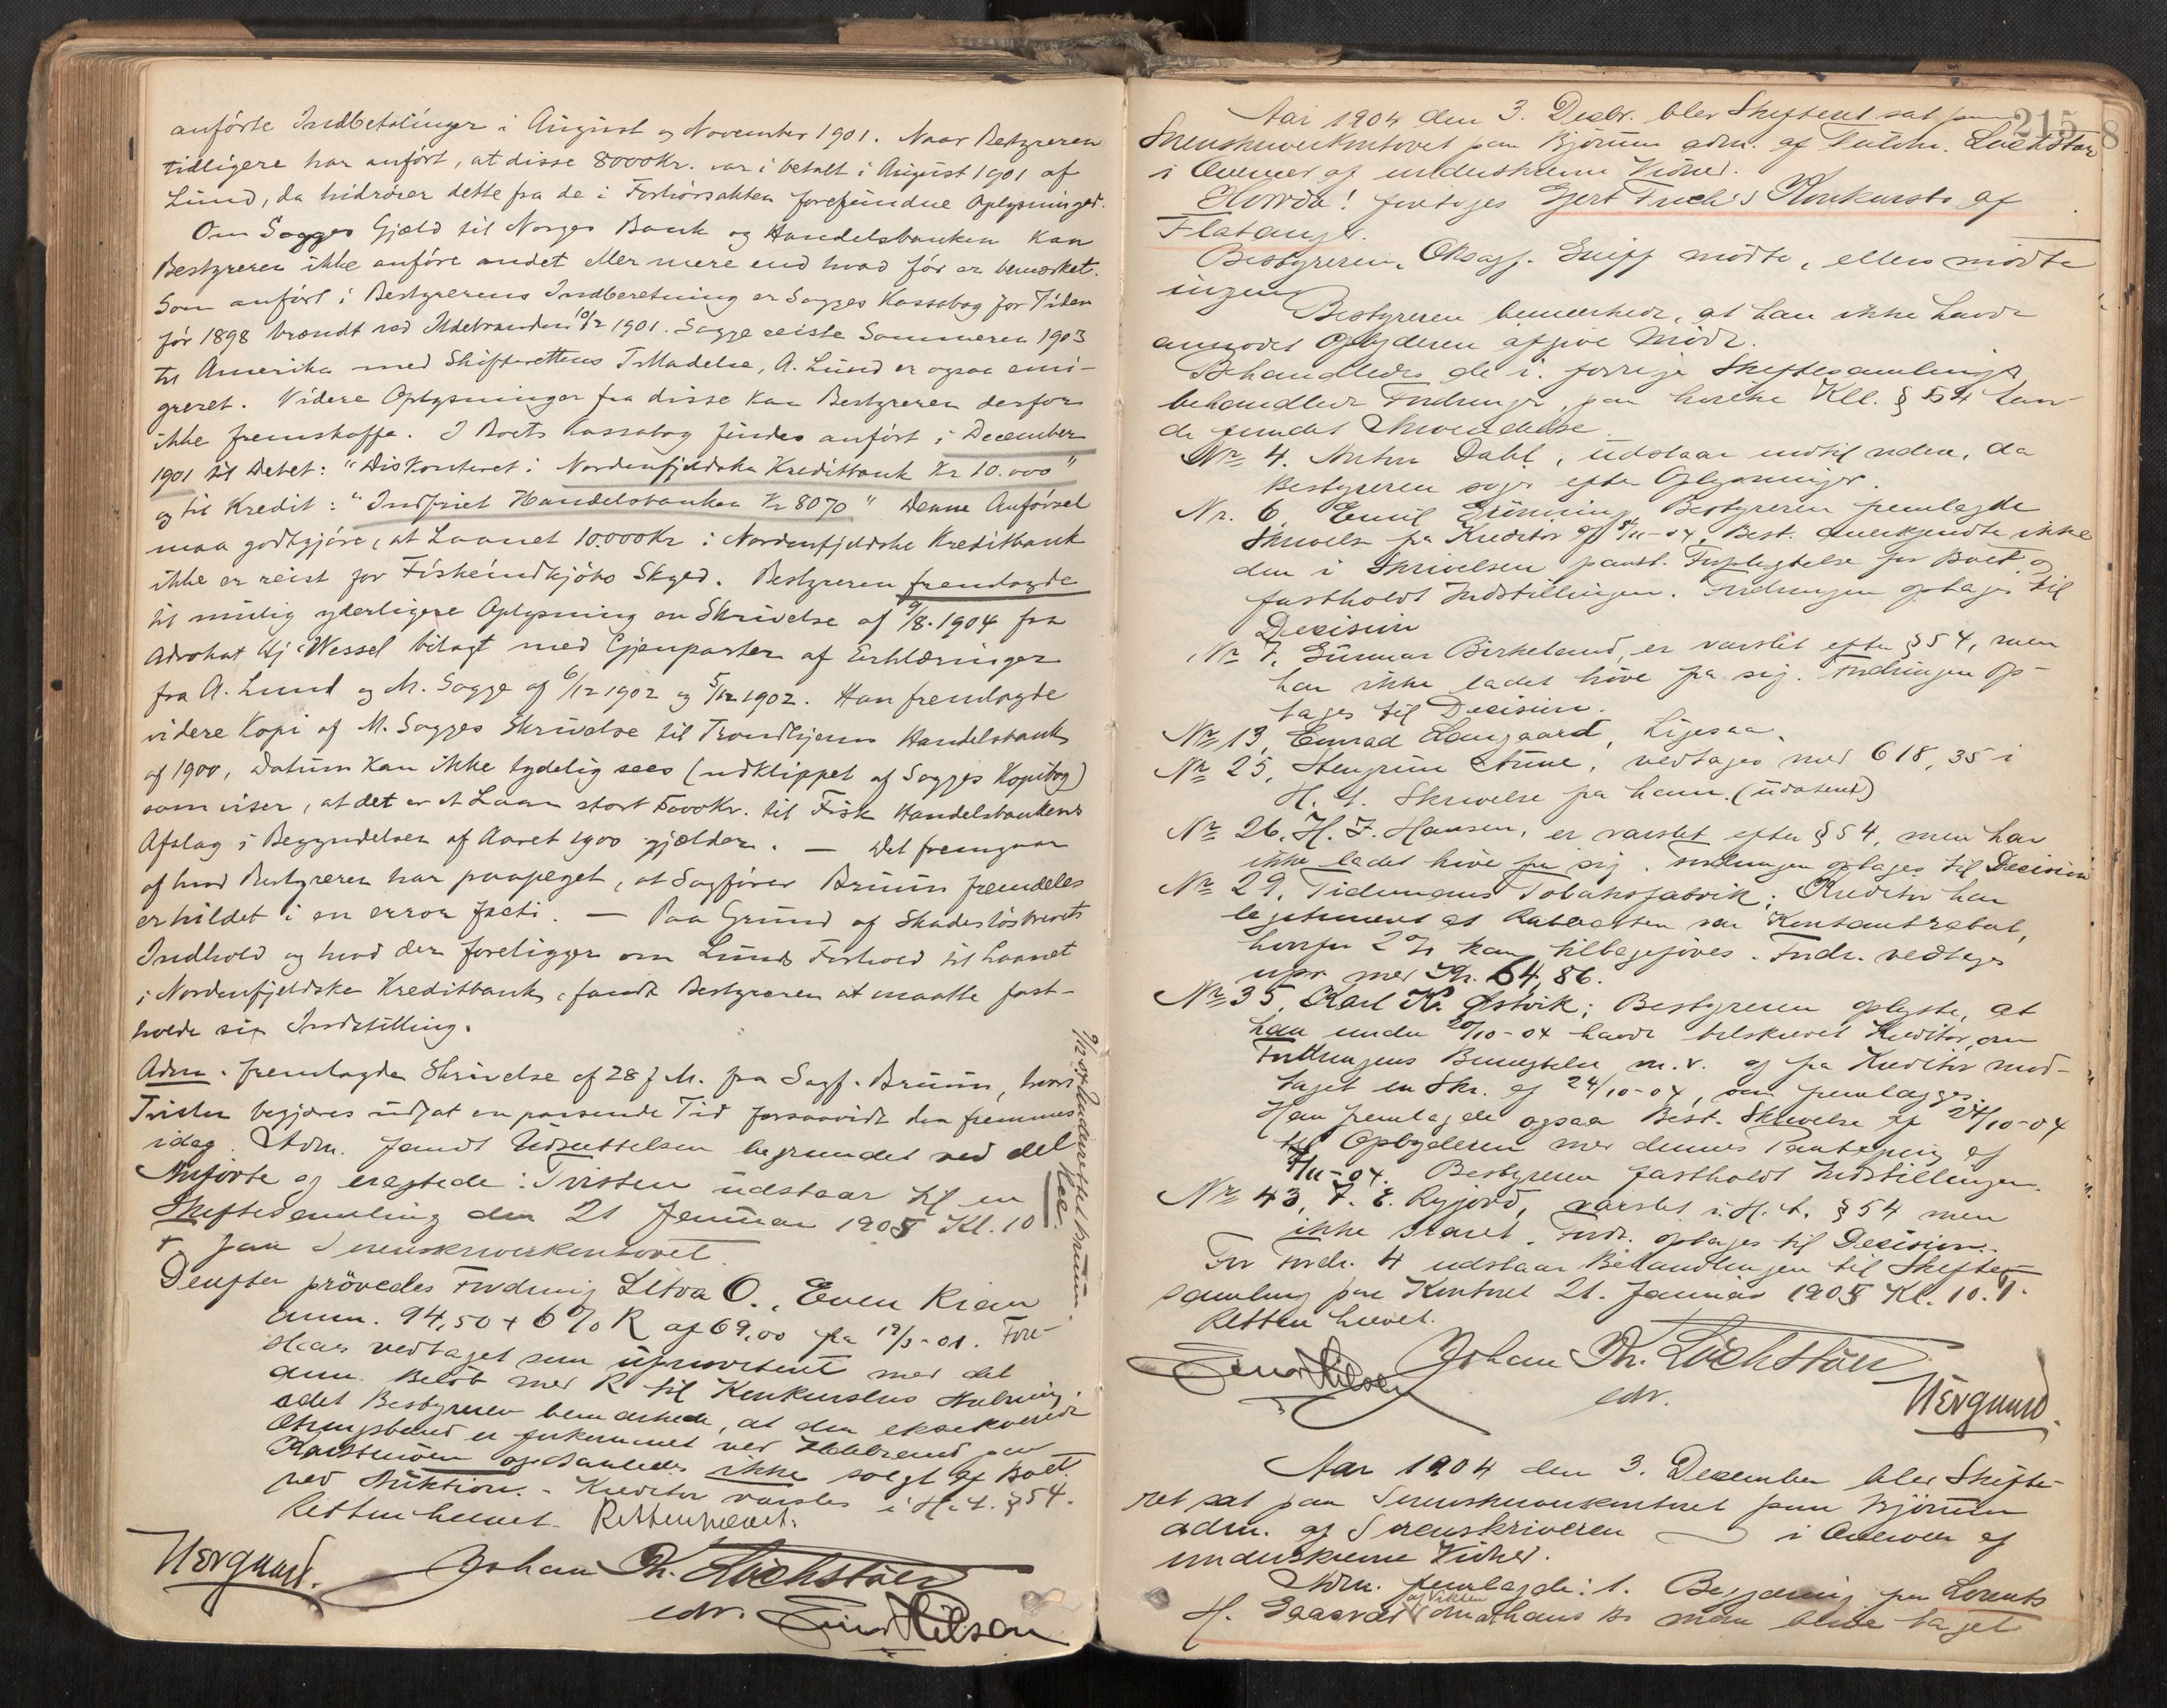 anförte Indbetalinger i August og November 1901. Naar Bestyreren
tidligere har anfört, at disse 8000Kr. var i betalt i August 1901 af
Lund, da hidrörer dette fra de i Forhörsakten forefundne Oplysninger.
Om Sagges Gjæld til Norges Bank og Handelsbanken kan
Bestyreren ikke anföre andet eller mere end hvad för er bemærket.
Som anfört i Bestyrerens Indberetning er Sagges Kassabog for Tiden
för 1898 brændt ved Ildebranden 10/12 1901. Sagge reiste Sommeren 1903
til Amerika med Skifterettens Tilladelse, A. Lund er ogsaa emi-
greret. Videre Oplysninger fra disse kan Bestyreren derfor
ikke fremskaffe. I Boets Kassabog findes anfört i December
1901 til Debet: "Diskonteret i Nordenfjeldske Kreditbank Kr 10.000"
og til Kredit: "Indfriet Handelsbanken Kr 8070" Denne Anförsel
maa godtgjöre, at Laanet 10.000Kr i Nordenfjeldske Kreditbank
ikke er reist for Fiskeindkjöbs Skyld. Bestyreren fremlagde
til mulig yderligere Oplysning en Skrivelse af 9/8. 1904 fra
Advokat Hj. Wessel bilagt med Gjenparter af Erklæringer
fra A. Lund og M. Sagge af 6/12 1902 og 5/12 1902. Han fremlagde
videre Kopi af M. Sagges Skrivelse til Trondhjems Handelsbank
af 1900, Datum kan ikke tydelig sees (udklippet af Sagges Kopibog)
som viser, at det er et Laan stort 5000Kr. til Fisk Handelsbankens
Afslag i Begyndelsen af Aaret 1900 gjælder. — Det fremgaar
af hvad Bestyreren har paapeget, at Sagförer Bruun fremdeles
er hildet i en error facti. — Paa Grund af Skadeslösbrevets
Indhold og hvad der foreligger om Lunds Forhold til Laanet
i Nordenfjeldske Kreditbank, fandt Bestyreren at maatte fast-
holde sin Indstilling.
Adm. fremlagde Skrivelse af 28 f. M. fra Sagf. Bruun, hvori
Tvisten begjæres udsat en passende Tid forsaavidt den fremmes
idag. Adm. fandt Udsettelsen begrundet ved det
Anförte og eragtede: Tvisten udstaar til en
Skiftesamling den 21 Januar 1905 Kl. 10
f. paa Sorenskriverkontoret.
Derefter prövedes Fordring Litra O., Even Rian
anm. 94,50 + 6 % R af 69,00 fra 19/3-01. Fore-
slaaes vedtaget som uprioritert med det
anm. Belöb med R til Konkursens Aabning.
idet Bestyreren bemærkede, at den eksekverede
er forkommet ved Ildebrand paa
og saaledes ikke solgt af Boet
ved Auktion. - Kreditor varsles i H. t. § 54.
Retten hævet. Retten hævet.
Johan Th. Lochstöer
edv. Einar Nilsen
Aar 1904 den 3. Decbr. blev Skifteret sat paa
Sorenskriverkontoret paa Björum adm. af Fuldm. Lochstöer
i Overvær af underskrevne Vidner.
Hvorda! foretoges Gjert Konkursbo af
Flatanger.
Bestyreren, Oksagf. mödte, ellers mödte
ingen
Bestyreren bemærkede, at han ikke havde
anmodet Opbyderen afgive Möde.
Behandledes de i forrige Skiftesamling
behandlede Fordringer, paa hvilke Kll. § 54 hav-
de fundet Anvendelse.
Nr 4. Anton Dahl, udstaar indtil videre, da
Bestyreren söger efter Oplysninger.
Nr. 6 Emil Bestyreren fremlagde
Skrivelse fra Kreditor af -04. Best. anerkjendte ikke
den i Skrivelsen paast. Forpligtelse for Boet og
fastholdt Indstillingen. Fordringen optages til
Decision
Nr 7, Gunnar Birkeland, er varslet efter § 54, men
har ikke ladet höre fra sig. Fordringen op-
tages til Decision.
Nr 13, Langaard, Ligesaa.
Nr 25, vedtages med 618,35 i
H. t. Skrivelse fra ham. (udateret)
Nr 26, H. J. Hansen, er varslet efter § 54, men har
ikke ladet höre fra sig. Fordringen optages til Decision
Nr 29, Tidemans Tobaksfabrik; Kreditor har
legitimeret at Rabatten var Kontantrabat,
hvorfor 2 % kan tilbageföres. Fordr. vedtages
upr. med Kr. 64,86.
Nr 35, Karl Kr. Östvik; Bestyreren oplyste, at
han under 20/10-04 havde tilskrevet Kreditor om
Fordringens Benegtelse m. v. og fra Kreditor mod-
taget en Skr. af 24/10-04, som fremlægges.
Han fremlagde ogsaa Best. Skrivelse af 24/10-04
til Opbyderen med dennes Paategning af
/11-04. Bestyreren fastholdt Indstillingen.
Nr 43, varslet i H. t. § 54 men
ikke svaret. Fordr. optages til Decision.
For Fordr. 4 udstaar Behandlingen til Skifte-
samling paa Kontoret 21. Januar 1905 Kl. 10. f.
Retten hævet.
Einar Nilsen Johan Th. Lochstöer
edv.
Aar 1904 den 3. December blev Skifte-
ret sat paa Sorenskriverkontoret paa Björum
adm. af Sorenskriveren i Overvær af
underskrevne Vidner.
Adm. fremlagde: 1. Begjæring fra Lorents
H. af Vikten om at hans Bo maa blive taget
215
8